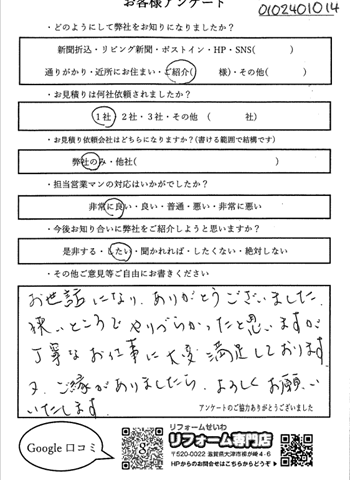 お客様アンケート
0102401014
・どのようにして弊社をお知りになりましたか？
新聞折込・リビング新聞・ポストイン・HP・SNS(　　　)
通りがかり・近所にお住まい・ご紹介(　　　様)・その他(　　　)
・お見積りは何社依頼されましたか？
1社・2社・3社・その他　(　　　社)
・お見積り依頼会社はどちらになりますか？(書ける範囲で結構です)
弊社のみ・他社(　　　)
・担当営業マンの対応はいかがでしたか？
非常に良い・良い・普通・悪い・非常に悪い
・今後お知り合いに弊社をご紹介しようと思いますか？
是非する・したい・聞かれれば・したくない・絶対しない
・その他ご意見等ご自由にお書きください
お世話になり、ありがとうございました。
狭いところで やりづらかったと思いますが
丁寧なお仕事に大変 満足しております
又、ご縁がありましたら、よろしくお願い
いたします
アンケートのご協力ありがとうございました
Google口コミ
リフォームせいわ
リフォーム専門店
〒520-0022 滋賀県大津市柳が崎4-6
HPからのお問合せはこちらからどうぞ▶